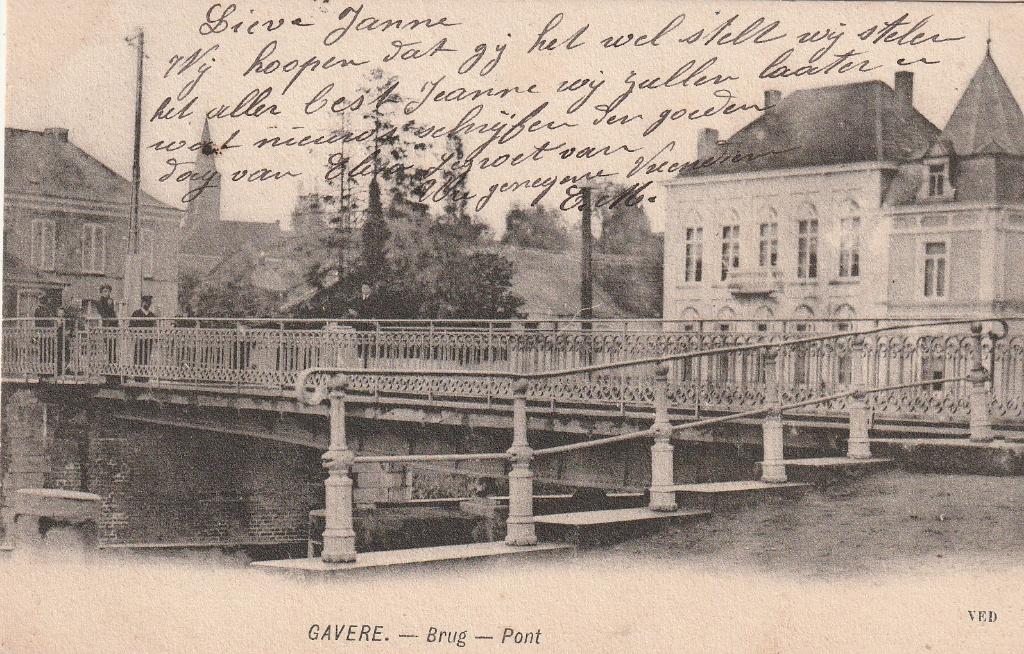 Lieve Janne
Wij hoopen dat gij het wel stelt wij stelen
het aller best Jeanne wij zullen laater en
wat nieuws schrijfen den goeden
dag van Elisa gegroet van
Uw genegene Vrienden
E. M.
GAVERE. — Brug — Pont
VED